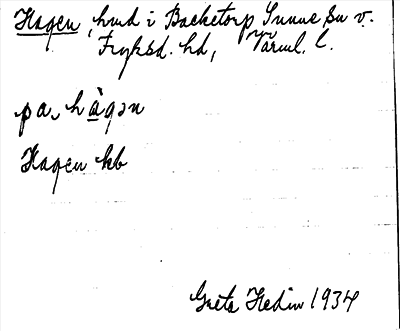 Hagen, hmd i Backetorp Sunne sn v.
Fryksd. hd, Värml. l.
på, hàgən
Hagen kb
Greta Hedin 1934